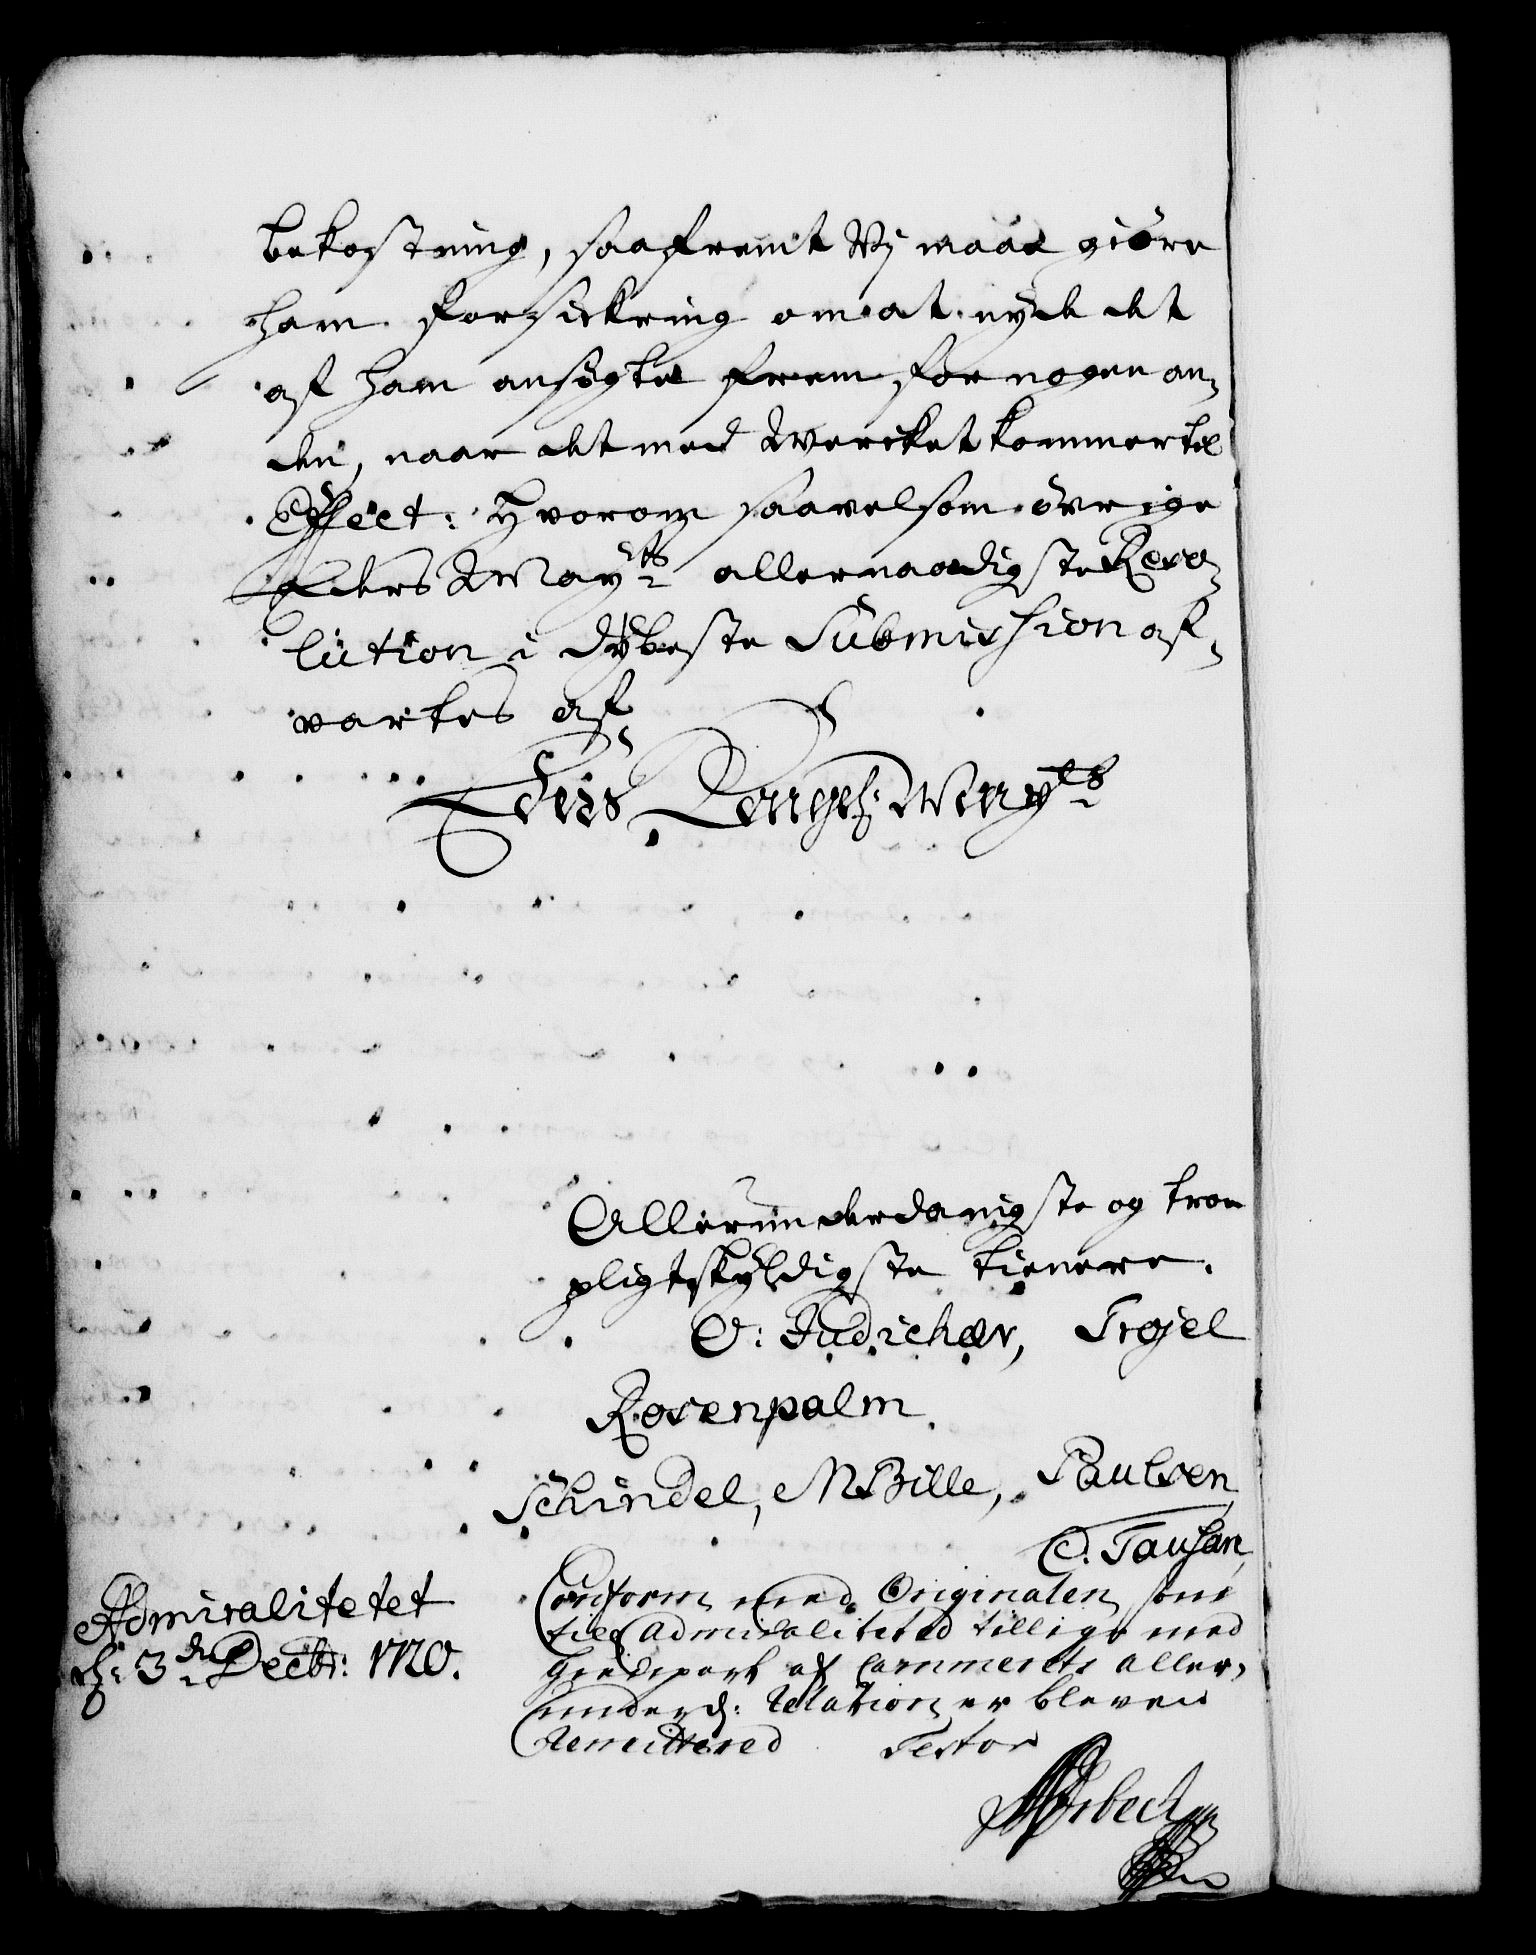 bekostning, saafremt Wj maae giöre
ham forsickring om at nyde det
af ham ansögte frem for nogen an-
den, naar det med Wercket kommer til
Effect: Hvorom saavelsom övrige
Eders May:ts allernaadigste Reso-
lution i dybeste Submission af-
vartes af
Eders Kongel: May:ts
Allerunderdanigste og troe
pligtskyldigste tienere.
O: Judichær, Trojel
Rosenpalm.
Schindel, M Bille, Paulsen,
C. Tausan,
Admiralitetet
d: 3de Decbr: 1720.
Conform med Originalen som
til Admiraliteted tillige med
giedepart af Cammerets aller-
underd: Relation er bleven
Remittered Testor